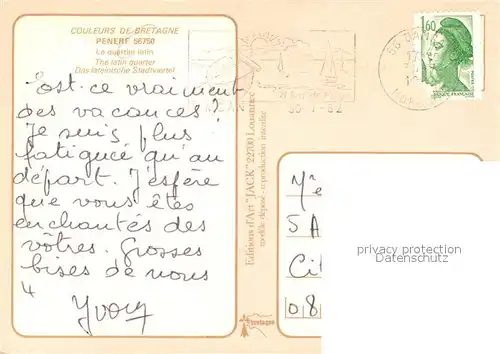 COULEURS DE BRETAGNE
PENERF 56750
Le quartier latin
The latin quarter
Das lateinische Stadtviertel
Est-ce vraiment
des vacances?
Je suis plus
fatiguée qu'au
départ. J'espère
que vous êtes
enchantés des
vôtres. Grosses
bises de nous
4
Editions d'Art "JACK" 22700 Louannec
modèle déposé - reproduction interdite
bretagne
1,60
56
Me
5 A
Ci
08
privacy protection
Datenschutz